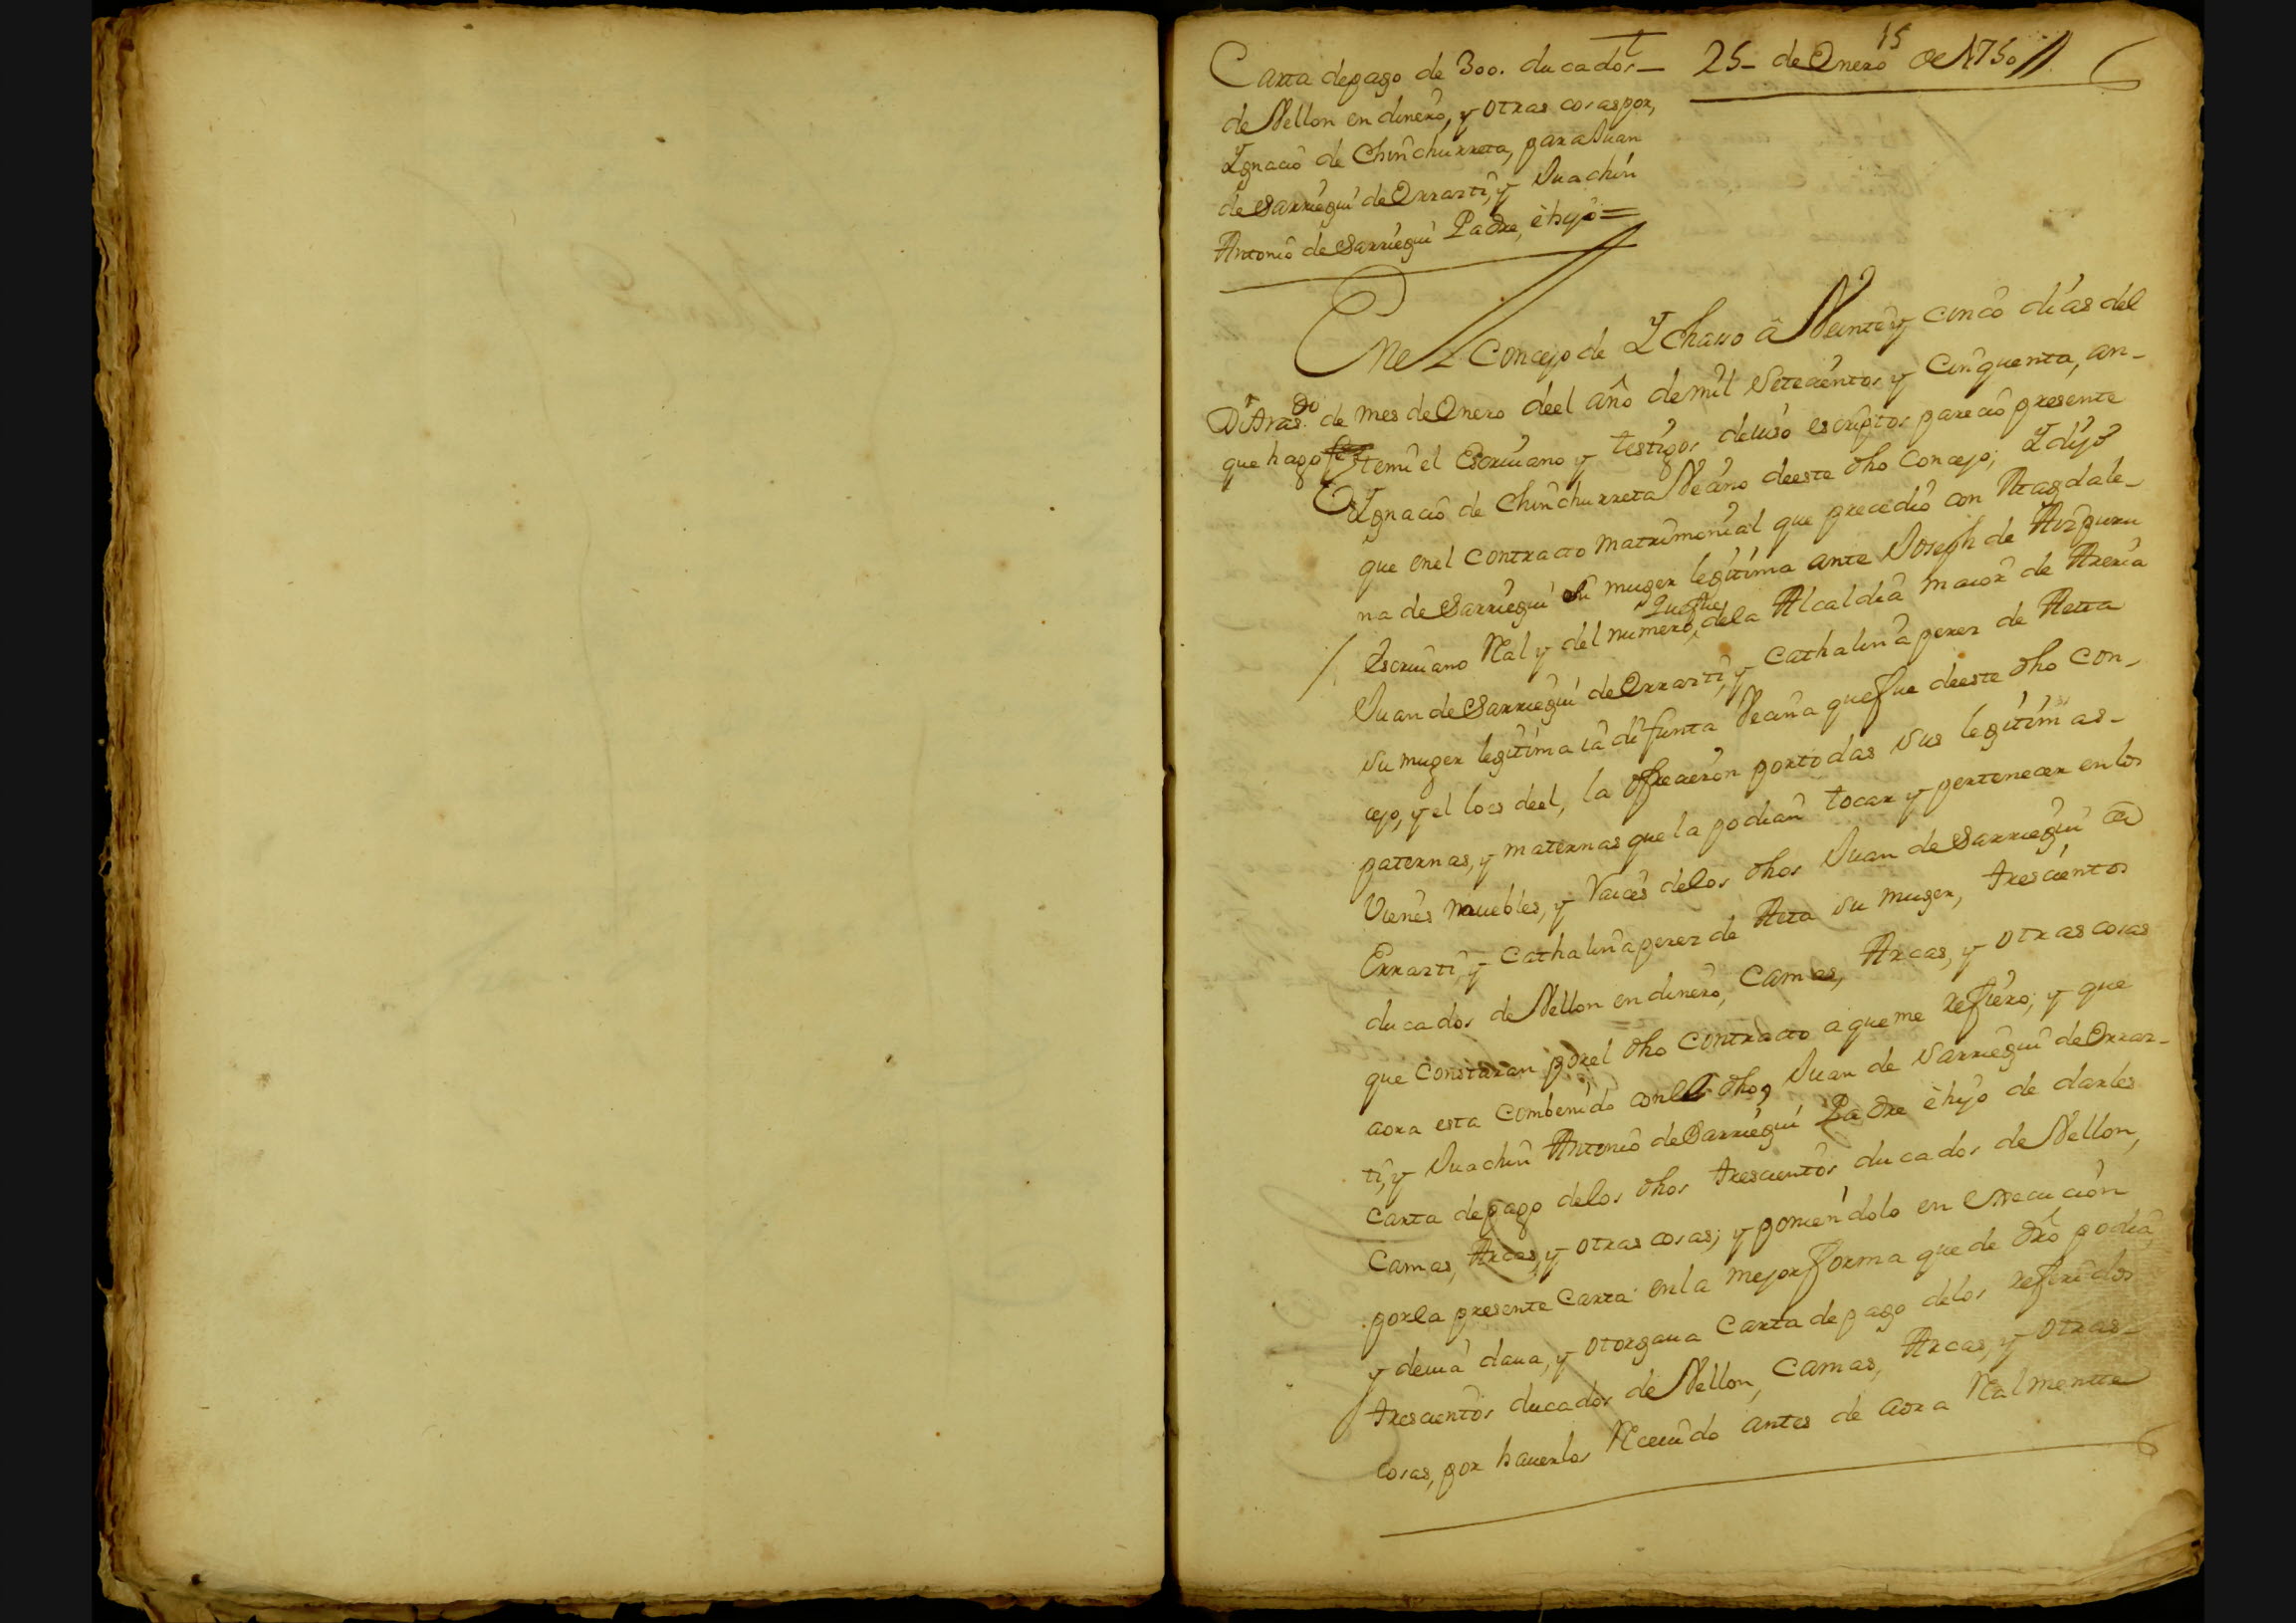 15
Carta depago de 300. ducados — 25 - de Enero de 1750 //
de Vellon en dinero, y otras cosas por,
Ygnacio de Chinchurreta, para Juan
de Sarriegui de Errazti, y Juachin
Antonio de Sarriegui Padre, è hijo =
En el Concejo de Ychasso â Veinte y cinco dias del
de mes de Enero deel año de mil Setecientos y Cinquenta, an-
que hago fe temi el Escriuano y testigos deiuso escriptos parecio presente
Ygnacio de Chinchurreta Vecino deeste dho Concejo; Y dijo
que enel Contracto matrimonial que precedio con Magdale-
na de Sarriegui su muger legitima ante Joseph de Aizpuru
que fue
Escriuano Real y del numero, dela Alcaldia maior de Areria
Juan de Sarriegui de Errazti, y Cathalina perez de Aeta
su muger legitima ia difunta Vecina que fue deeste dho Con-
cejo, y el los deel, la ofrecieron por todas sus legitimas -
paternas, y maternas que la podian tocar y pertenecer en los
Vienes muebles, y Raices delos dhos Juan de Sarriegui de
Errazti, y Cathalina perez de Aeta su muger, trescientos
ducados de Vellon en dinero, Camas, Arcas, y otras cosas
que Constaran por el dho Contracto a que me refiero; y que
aora esta Combenido con los dhos Juan de Sarriegui de Erraz-
ti, y Juachin Antonio de Sarriegui Padre è hijo de darles
Carta depago delos dhos trescientos ducados de Vellon,
Camas, Arcas, y otras cosas; y poniendolo en execucion
por la presente Carta enla mejor forma que de dro podia,
y deuia daua, y otorgaua Carta de pago delos referidos
trescientos ducados de Vellon, Camas, Arcas, y otras -
cosas, por hauerlos Receuido antes de aora Realmente